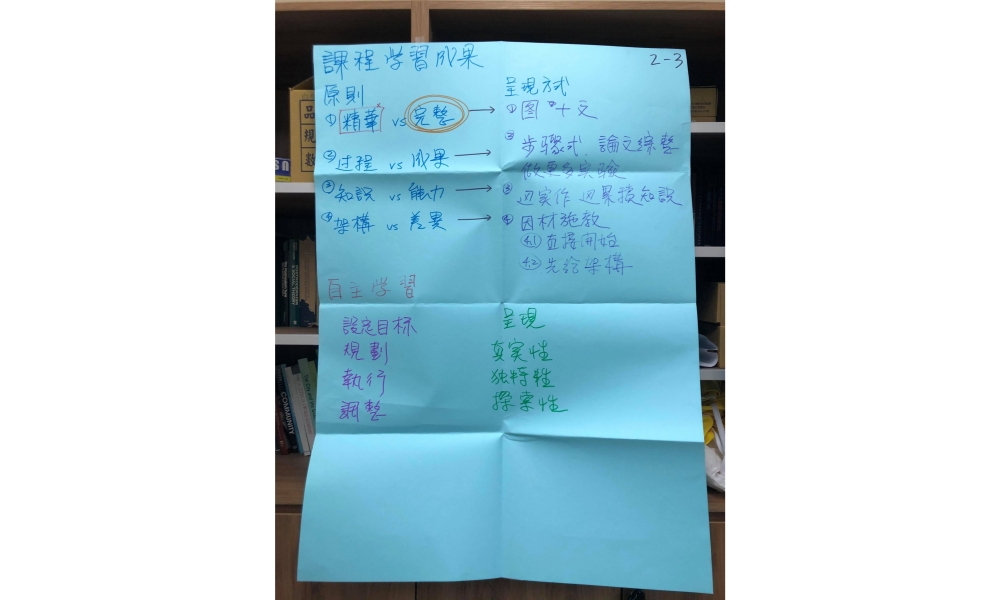 課程学習成果
2-3
原則
① 精華 vs 完整 →
② 过程 vs 成果 →
③ 知識 vs 能力 →
④ 架構 vs 差異 →
呈現方式
① 图 + 文
② 步驟式 論文綜整
做更多实驗
③ 边实作 边累積知識
④ 因材施教
4.1 直接開始
4.2 先給架構
自主学習
設定目标
規劃
執行
調整
呈現
真实性
独特性
探索性
品
規
數
COMMUNITY